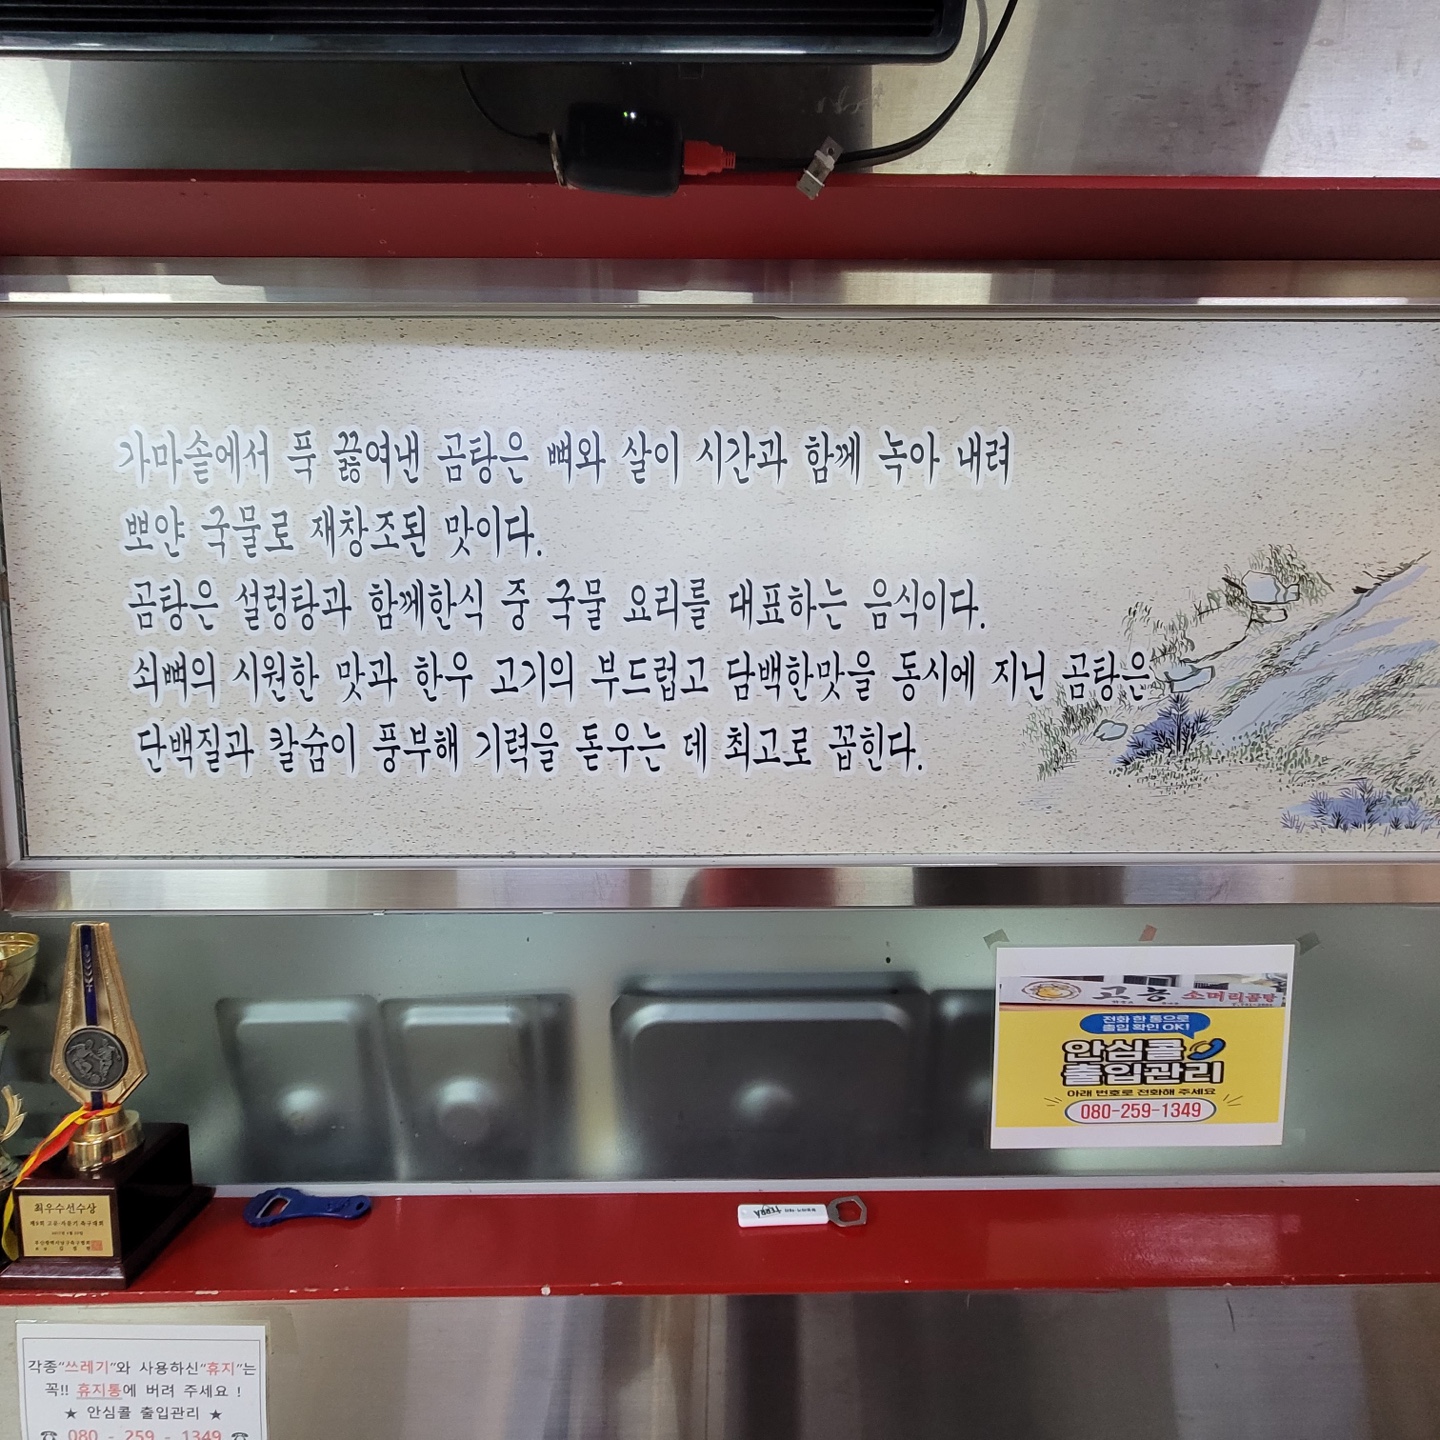 가마솥에서 푹 끓여낸 곰탕은 뼈와 살이 시간과 함께 녹아 내려
뽀얀 국물로 재창조된 맛이다.
곰탕은 설렁탕과 함께한식 중 국물 요리를 대표하는 음식이다.
쇠뼈의 시원한 맛과 한우 고기의 부드럽고 담백한맛을 동시에 지닌 곰탕은
단백질과 칼슘이 풍부해 기력을 돋우는 데 최고로 꼽힌다.
고농 소머리곰탕
전화 한 통으로
출입 확인 OK!
안심콜
출입관리
아래 번호로 전화해 주세요
080-259-1349
TERRA
최우수선수상
각종"쓰레기"와 사용하신"휴지"는
꼭!! 휴지통에 버려 주세요 !
★ 안심콜 출입관리 ★
☎ 080 - 259 - 1349 ☎